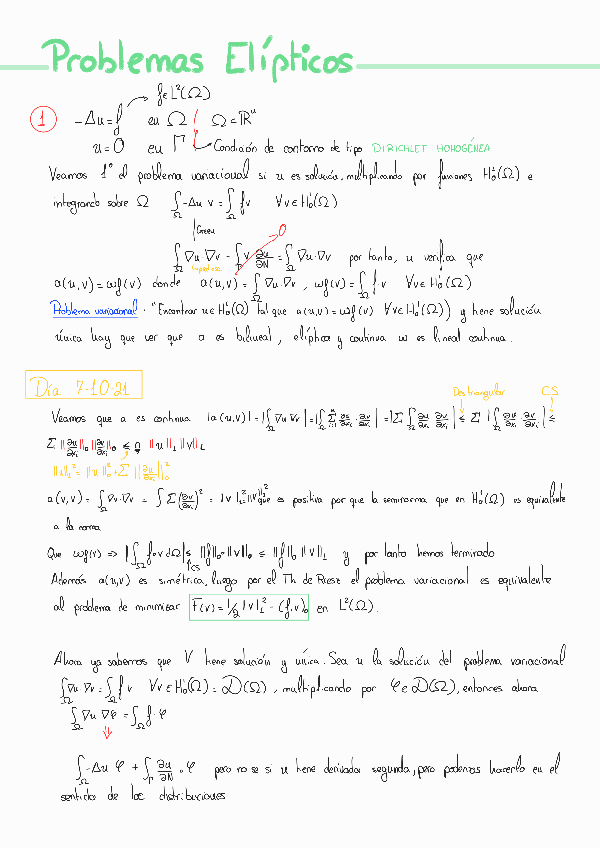 Problemas Elípticos
f∈L²(Ω)
① -Δu = f en Ω Ω=ℝⁿ
u = 0 en Γ Condición de contorno de tipo DIRICHLET HOMOGÉNEA
Veamos 1º el problema variacional si u es solución, multiplicando por funciones H₀¹(Ω) e
integrando sobre Ω ∫_Ω -Δu v = ∫_Ω fv ∀v∈H₀¹(Ω)
Green 0
∫_Ω ∇u ∇v - ∫_Γ v ∂u/∂N = ∫_Ω ∇u·∇v por tanto, u verifica que
a(u,v) = wf(v) donde a(u,v) = ∫_Ω ∇u·∇v, wf(v) = ∫_Ω f·v ∀v∈H₀¹(Ω)
Problema variacional · "Encontrar u∈H₀¹(Ω) tal que a(u,v) = wf(v) ∀v∈H₀¹(Ω)) y tiene solución
única hay que ver que a es bilineal, elíptica y continua w es lineal continua.
Día 7-10-21
Des triangular CS
Veamos que a es continua |a(u,v)| = |∫_Ω ∇u ∇v| = |∫_Ω Σ ∂u/∂xᵢ · ∂v/∂xᵢ| = |Σ ∫_Ω ∂u/∂xᵢ ∂v/∂xᵢ| ≤ Σ |∫_Ω ∂u/∂xᵢ · ∂v/∂xᵢ| ≤
Σ ||∂u/∂xᵢ||₀ ||∂v/∂xᵢ||₀ ≤ n ||u||₁ ||v||₁
||u||₁² = ||u||₀² + Σ ||∂u/∂xᵢ||₀²
a(v,v) = ∫_Ω ∇v·∇v = ∫ Σ (∂v/∂xᵢ)² = |v|₁² ||v||₁² que es positiva por que la seminorma que en H₀¹(Ω) es equivalente
a la norma
Que wf(v) ⇒ |∫_Ω f·v dΩ| ≤ ||f||₀ ||v||₀ ≤ ||f||₀ ||v||₁ y por tanto hemos terminado
CS
Además a(u,v) es simétrica, luego por el Th de Riesz el problema variacional es equivalente
al problema de minimizar F(v) = 1/2 |v|₁² - (f,v)₀ en L²(Ω).
Ahora ya sabemos que V tiene solución y única. Sea u la solución del problema variacional
∫_Ω ∇u·∇v = ∫_Ω f v ∀v∈H₀¹(Ω) = D(Ω), multiplicando por φ∈D(Ω), entonces ahora
∫_Ω ∇u ∇φ = ∫_Ω f·φ
∫_Ω -Δu φ + ∫_Γ ∂u/∂N · φ pero no se si u tiene derivada segunda, pero podemos hacerlo en el
sentido de las distribuciones